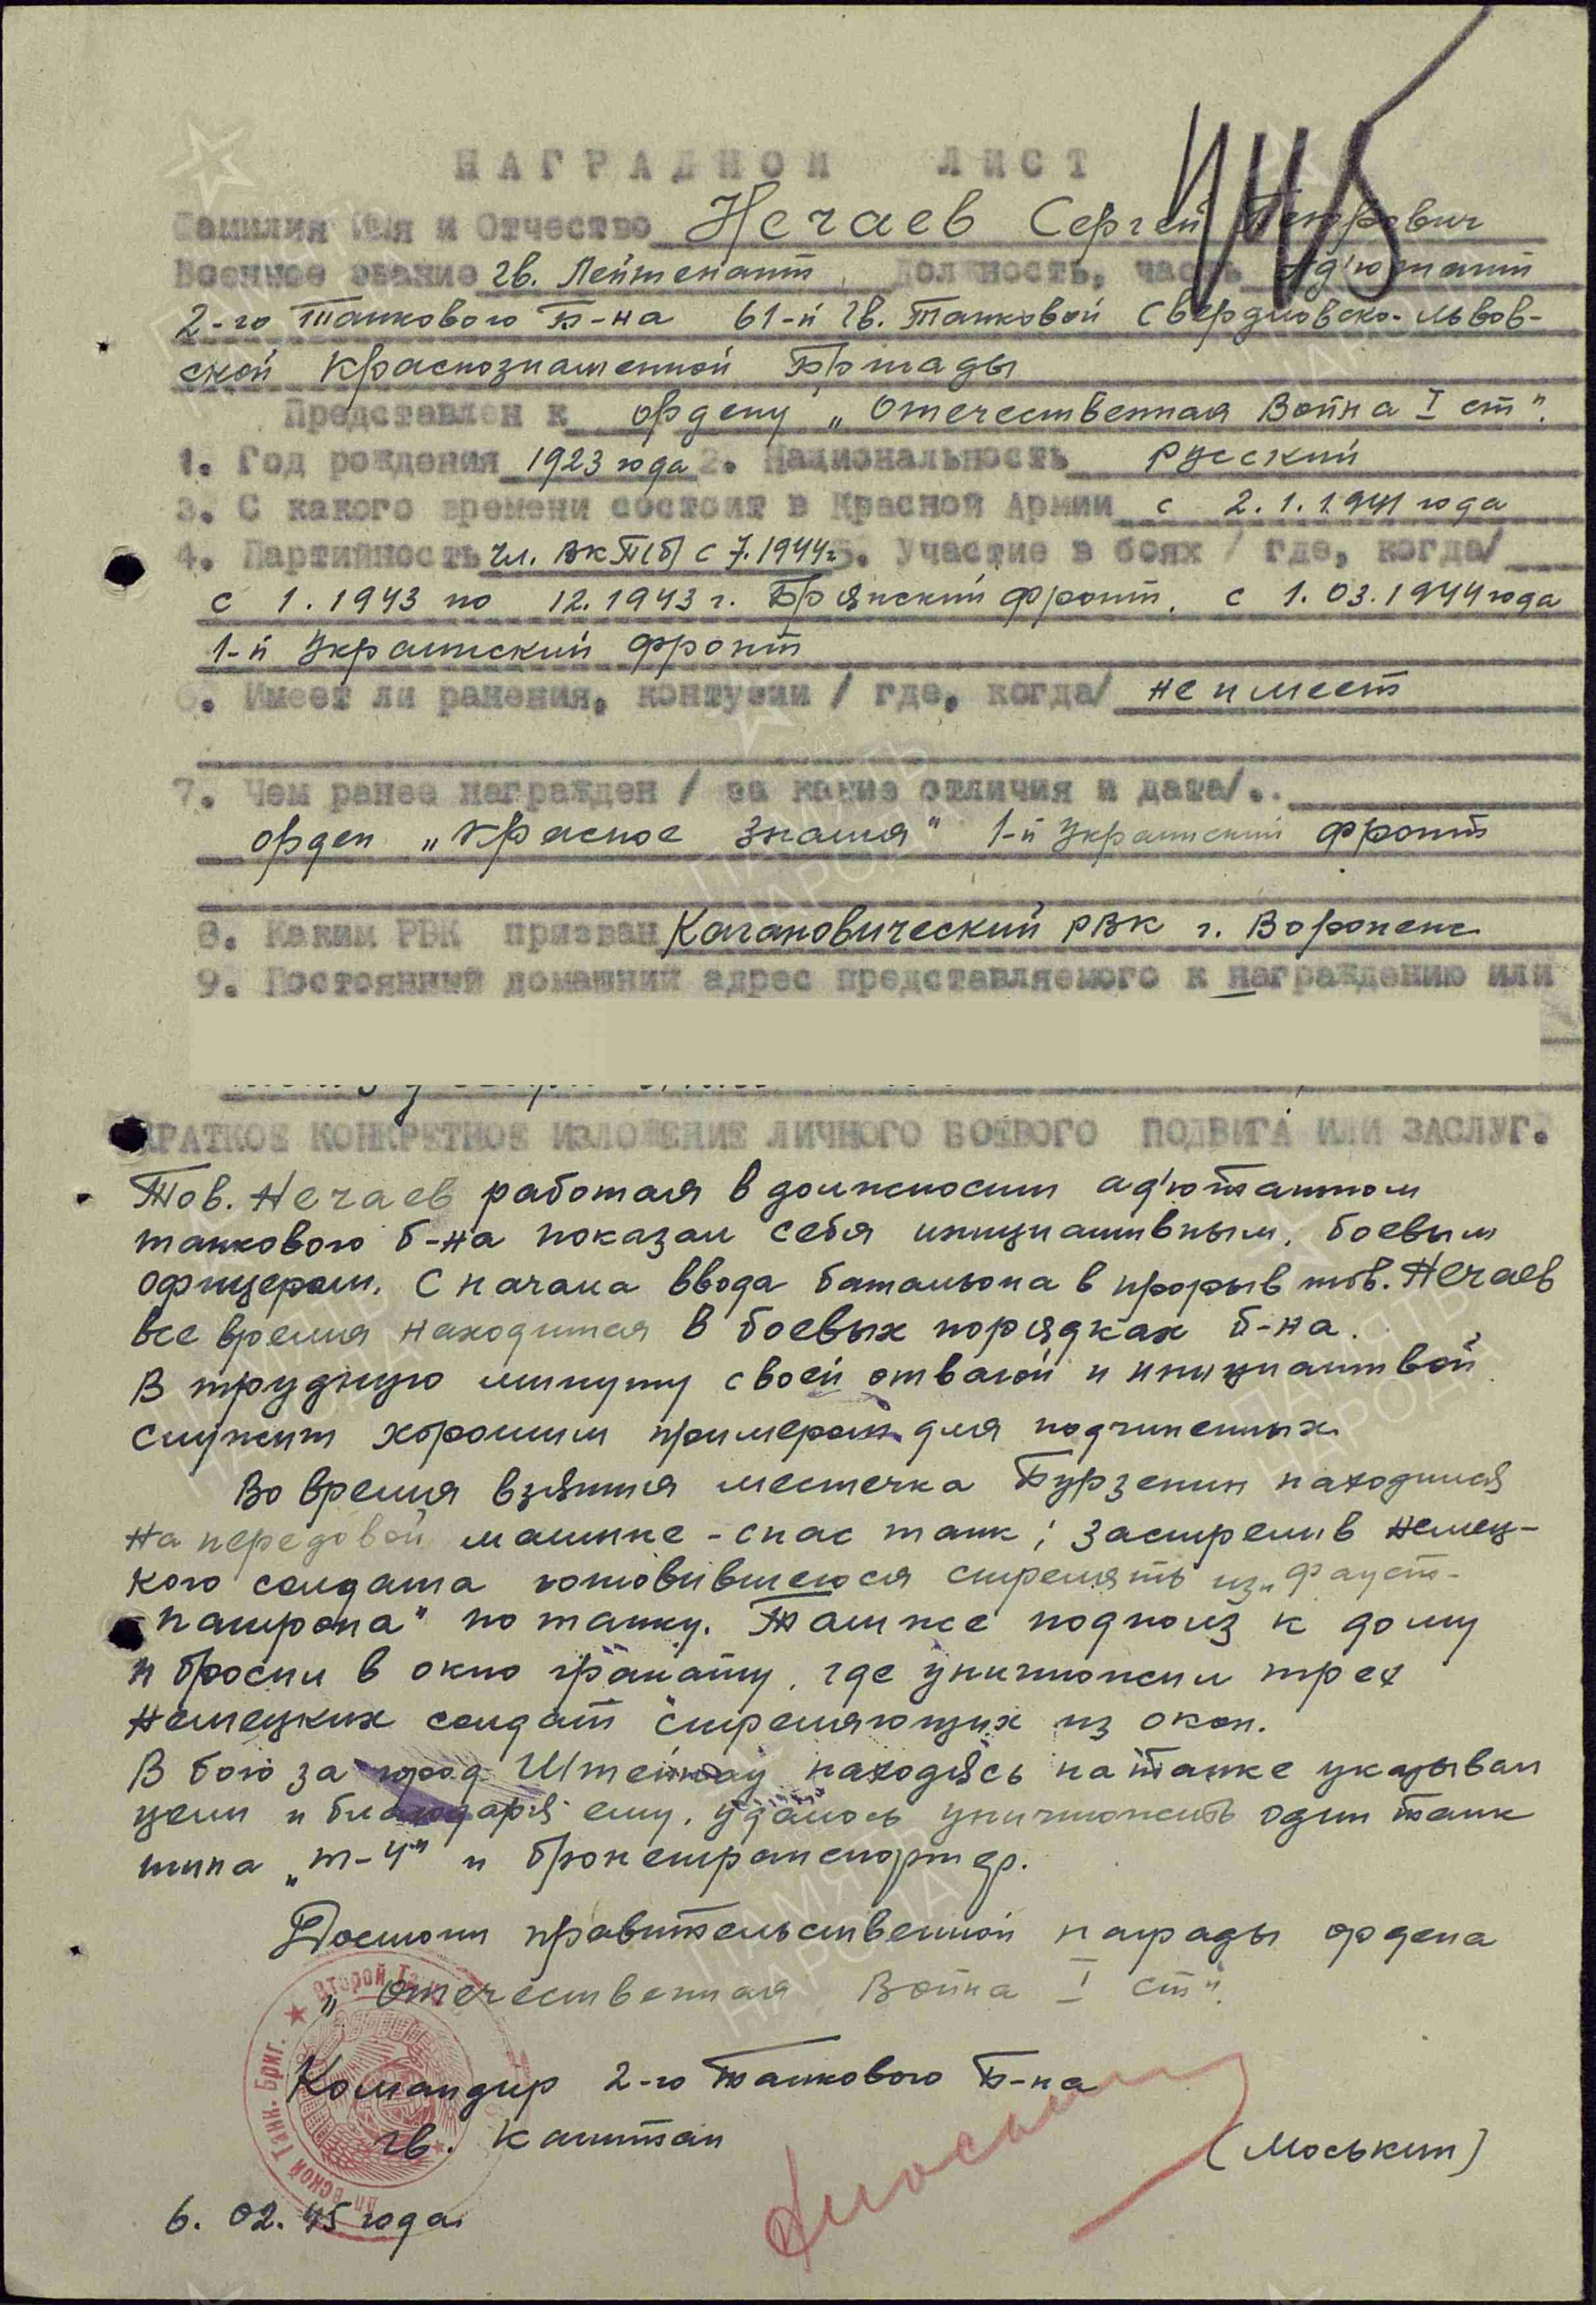 НАГРАДНОЙ ЛИСТ
Фамилия Имя и Отчество Нечаев Сергей Петрович
Военное звание гв. Лейтенант. Должность, часть Ад'ютант
2-го Танкового Б-на 61-й Гв. Танковой Свердловско-Львов-
ской Краснознаменной Бригады
Представлен к ордену „Отечественная Война I ст".
1. Год рождения 1923 года 2. Национальность русский
3. С какого времени состоит в Красной Армии с 2.1.1941 года
4. Партийность чл. ВКП(б) с 7.1944г 5. Участие в боях / где, когда/
с 1.1943 по 12.1943 г. Брянский фронт. с 1.03.1944 года
1-й Украинский фронт
6. Имеет ли ранения, контузии / где, когда/ не имеет
7. Чем ранее награжден / за какие отличия и дата/..
орден „Красное Знамя" 1-й Украинский фронт
8. Каким РВК призван Кагановический РВК г. Воронеж
9. Постоянный домашний адрес представляемого к награждению или
КРАТКОЕ КОНКРЕТНОЕ ИЗЛОЖЕНИЕ ЛИЧНОГО БОЕВОГО ПОДВИГА ИЛИ ЗАСЛУГ.
Тов. Нечаев работая в должности ад'ютантом
танкового б-на показал себя инициативным, боевым
офицером. С начала ввода батальона в прорыв тов. Нечаев
все время находится в боевых порядках б-на.
В трудную минуту своей отвагой и инициативой
служит хорошим примером для подчиненных.
Во время взятия местечка Бурзенин находился
на передовой машине - спас танк; застрелив немец-
кого солдата готовившегося стрелять из „Фауст-
патрона" по танку. Там же подполз к дому
и бросил в окно гранату, где уничтожил трех
немецких солдат стреляющих из окон.
В бою за город Штейнау находясь на танке указывал
цели и благодаря ему, удалось уничтожить один танк
типа „Т-4" и бронетранспортер.
Достоин правительственной награды ордена
„Отечественная Война I ст".
Командир 2-го Танкового Б-на
гв. Капитан
(Моськин)
6. 02. 45 года.